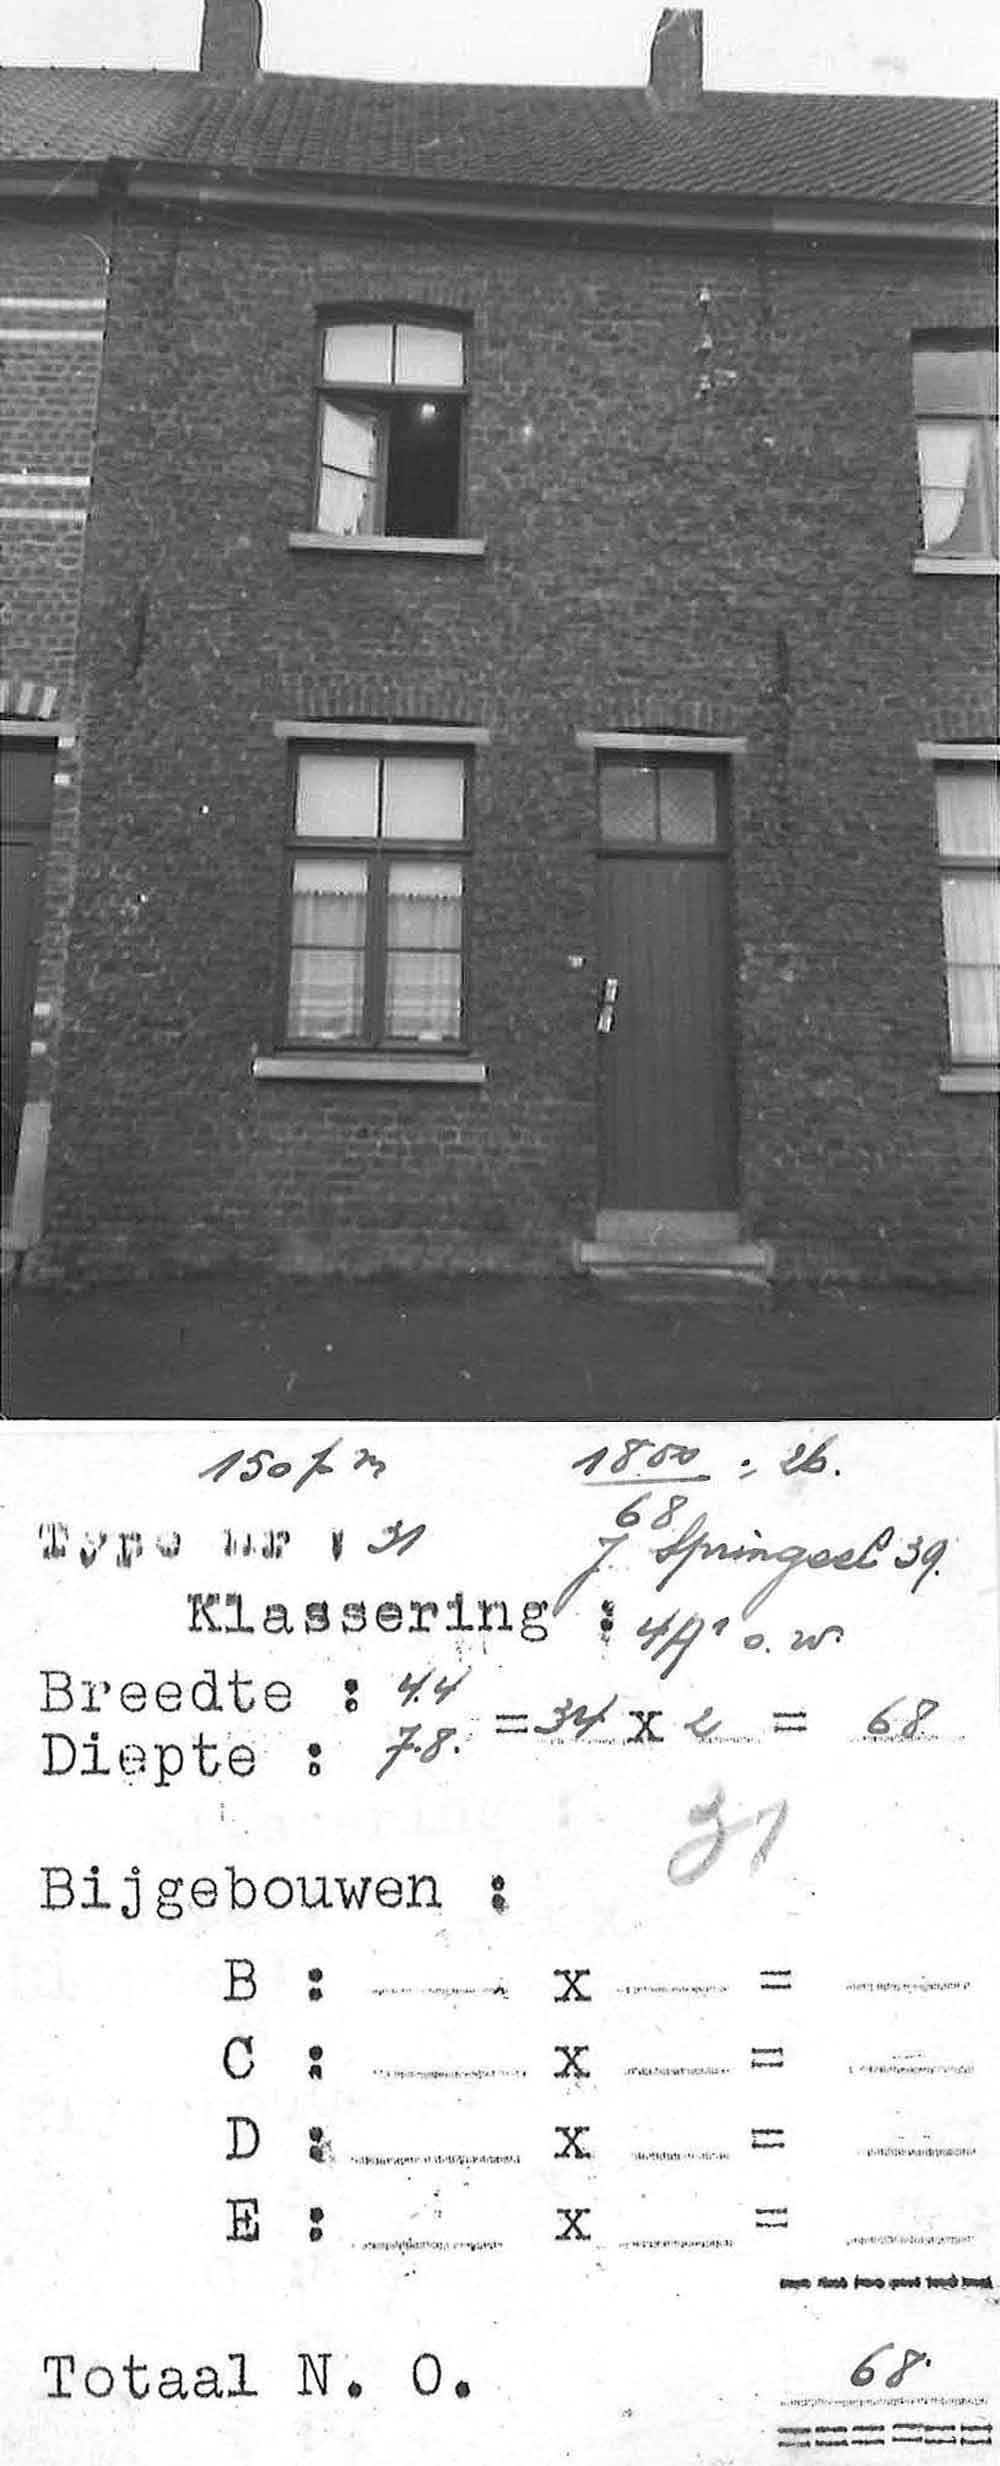 150 p m 1800 : 26.
68
Type nr : 31 J Springael 39.
Klassering : 4A¹ o. w.
Breedte : 4.4
= 34 x 2 = 68
Diepte : 7.8.
31
Bijgebouwen :
B : x =
C : x =
D : x =
E : x =
Totaal N. O. 68.